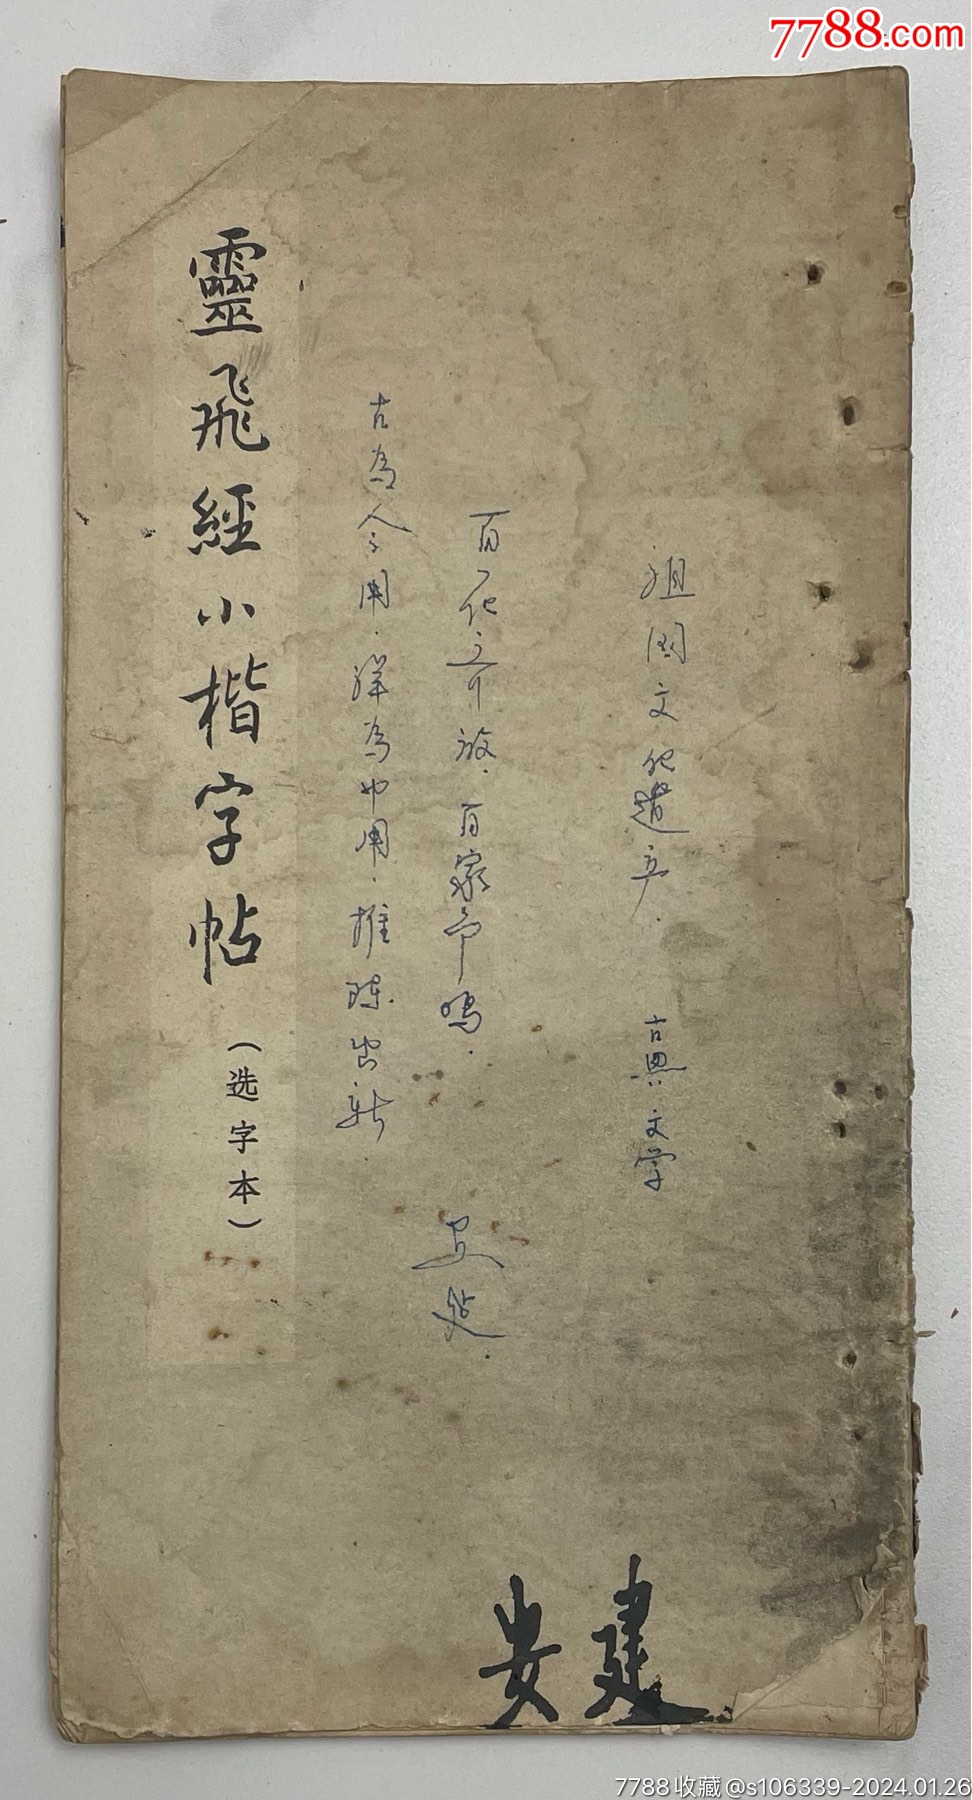 7788.com
祖国文化遗产. 古典文学
百花齐放. 百家争鸣.
古為今用. 洋為中用. 推陈出新
靈飛經小楷字帖（选字本）
安建
7788收藏@s106339-2024.01.26